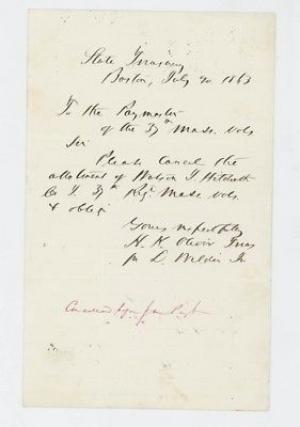 State Treasury
Boston, July 20 1863
To the Paymaster
of the 37th Mass. Vols
Sir
Please Cancel the
allotment of Watson I Hitchcock
Co I 37th Regt Mass Vols
& oblige
Yours respectfully
H. K. Oliver Treas
pr D. Wilder Jr